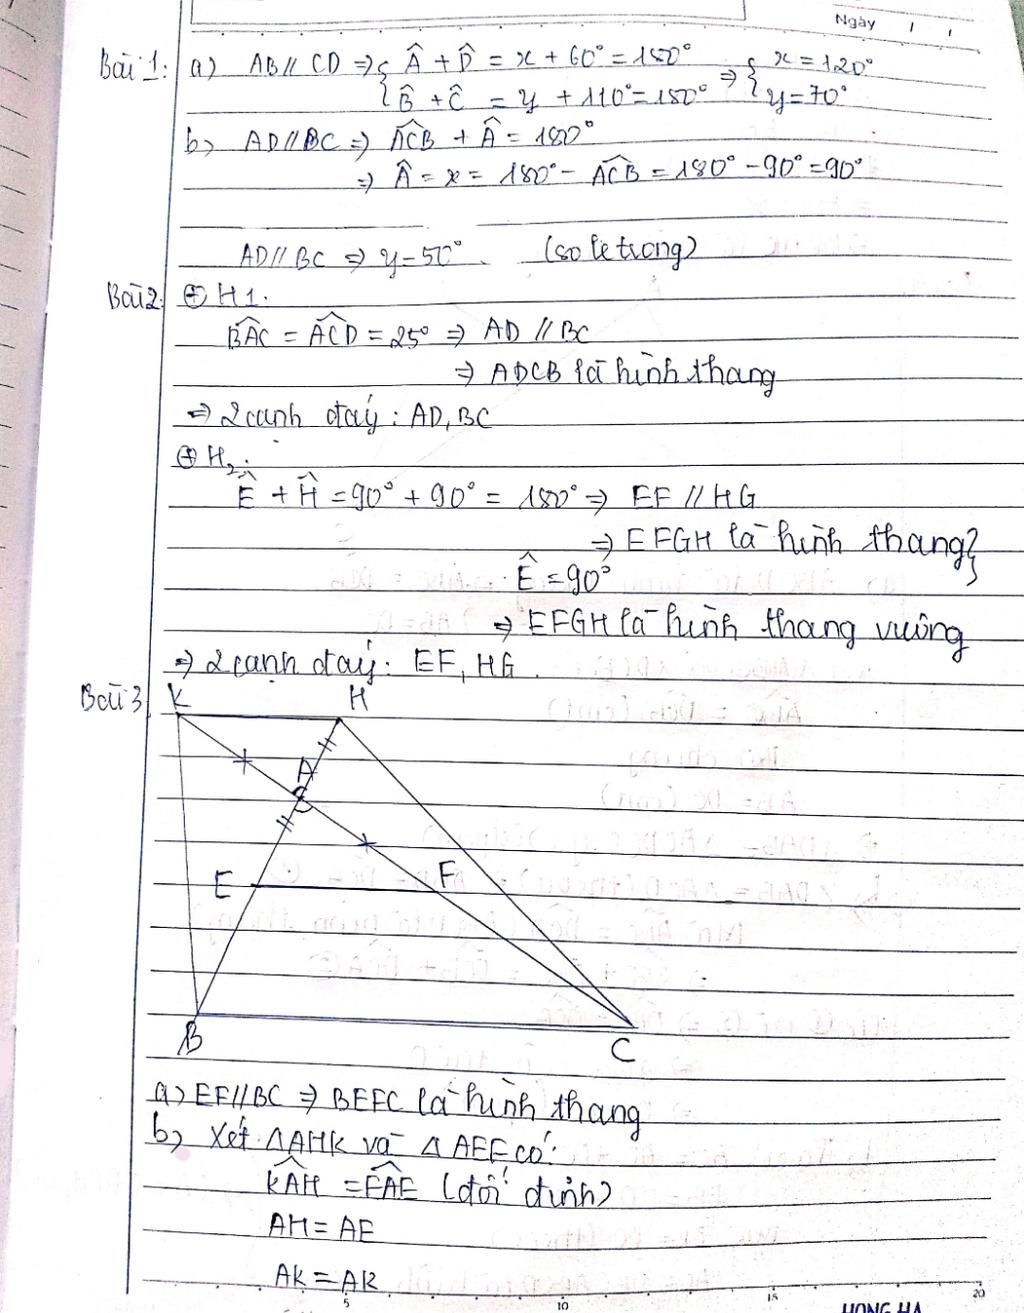 Ngày / /
Bài 1: a) AB // CD => { Â + D̂ = x + 60° = 180°
B̂ + Ĉ = y + 110° = 180° => { x = 120°
y = 70°
b) AD // BC => ACB + Â = 180°
=> Â = x = 180° - ACB = 180° - 90° = 90°
AD // BC => y = 50°. (so le trong)
Bài 2: ⊕ H1.
BAC = ACD = 25° => AD // BC
=> ADCB là hình thang
=> 2 cạnh đáy: AD, BC
⊕ H2.
Ê + Ĥ = 90° + 90° = 180° => EF // HG
=> EFGH là hình thang }
Ê = 90°
=> EFGH là hình thang vuông
=> 2 cạnh đáy: EF, HG.
Bài 3
K H
A
E F
B C
a) EF // BC => BEFC là hình thang
b) Xét ΔAHK và ΔAEF có:
KAH = FAE (đối đỉnh)
AH = AE
AK =
5 10 15 20
HONG HA